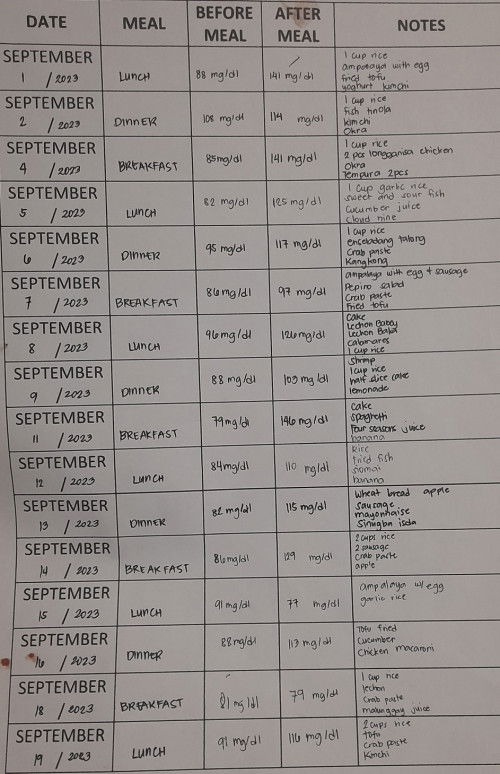 DATE MEAL BEFORE MEAL AFTER MEAL NOTES
SEPTEMBER 1 / 2023 LUNCH 88 mg/dl 141 mg/dl 1 cup rice
ampalaya with egg
fried tofu
yoghurt kimchi
SEPTEMBER 2 / 2023 DINNER 108 mg/dl 114 mg/dl 1 cup rice
fish tinola
kimchi
Okra
SEPTEMBER 4 / 2023 BREAKFAST 85mg/dl 141 mg/dl 1 cup rice
2 pcs longganisa chicken
Okra
Tempura 2pcs
SEPTEMBER 5 / 2023 LUNCH 82 mg/dl 125 mg/dl 1 cup garlic rice
sweet and sour fish
cucumber juice
cloud nine
SEPTEMBER 6 / 2023 DINNER 95 mg/dl 117 mg/dl 1 cup rice
enseladang talong
Crab paste
Kangkong
SEPTEMBER 7 / 2023 BREAKFAST 86mg/dl 97 mg/dl ampalaya with egg + sausage
Pepino salad
Crab paste
Fried tofu
SEPTEMBER 8 / 2023 LUNCH 96mg/dl 126mg/dl Cake
Lechon Baboy
Lechon Baka
calamares
1 cup rice
SEPTEMBER 9 / 2023 DINNER 88 mg/dl 103 mg/dl Shrimp
1 cup rice
half slice cake
lemonade
SEPTEMBER 11 / 2023 BREAKFAST 79mg/dl 146 mg/dl cake
spaghetti
four seasons juice
banana
SEPTEMBER 12 / 2023 LUNCH 84mg/dl 110 mg/dl Rice
fried fish
siomai
banana
SEPTEMBER 13 / 2023 DINNER 82 mg/dl 115 mg/dl Wheat bread apple
sausage
mayonnaise
Sinigbn isda
SEPTEMBER 14 / 2023 BREAKFAST 86mg/dl 129 mg/dl 2 cups rice
2 sausage
Crab paste
apple
SEPTEMBER 15 / 2023 LUNCH 91 mg/dl 77 mg/dl ampalaya w/ egg
garlic rice
SEPTEMBER 16 / 2023 DINNER 88mg/dl 113 mg/dl Tofu fried
Cucumber
Chicken macaroni
SEPTEMBER 18 / 2023 BREAKFAST 81 mg/dl 79 mg/dl 1 cup rice
lechon
Crab paste
malunggay juice
SEPTEMBER 19 / 2023 LUNCH 91 mg/dl 116 mg/dl 2 cups rice
Tofu
Crab paste
Kimchi